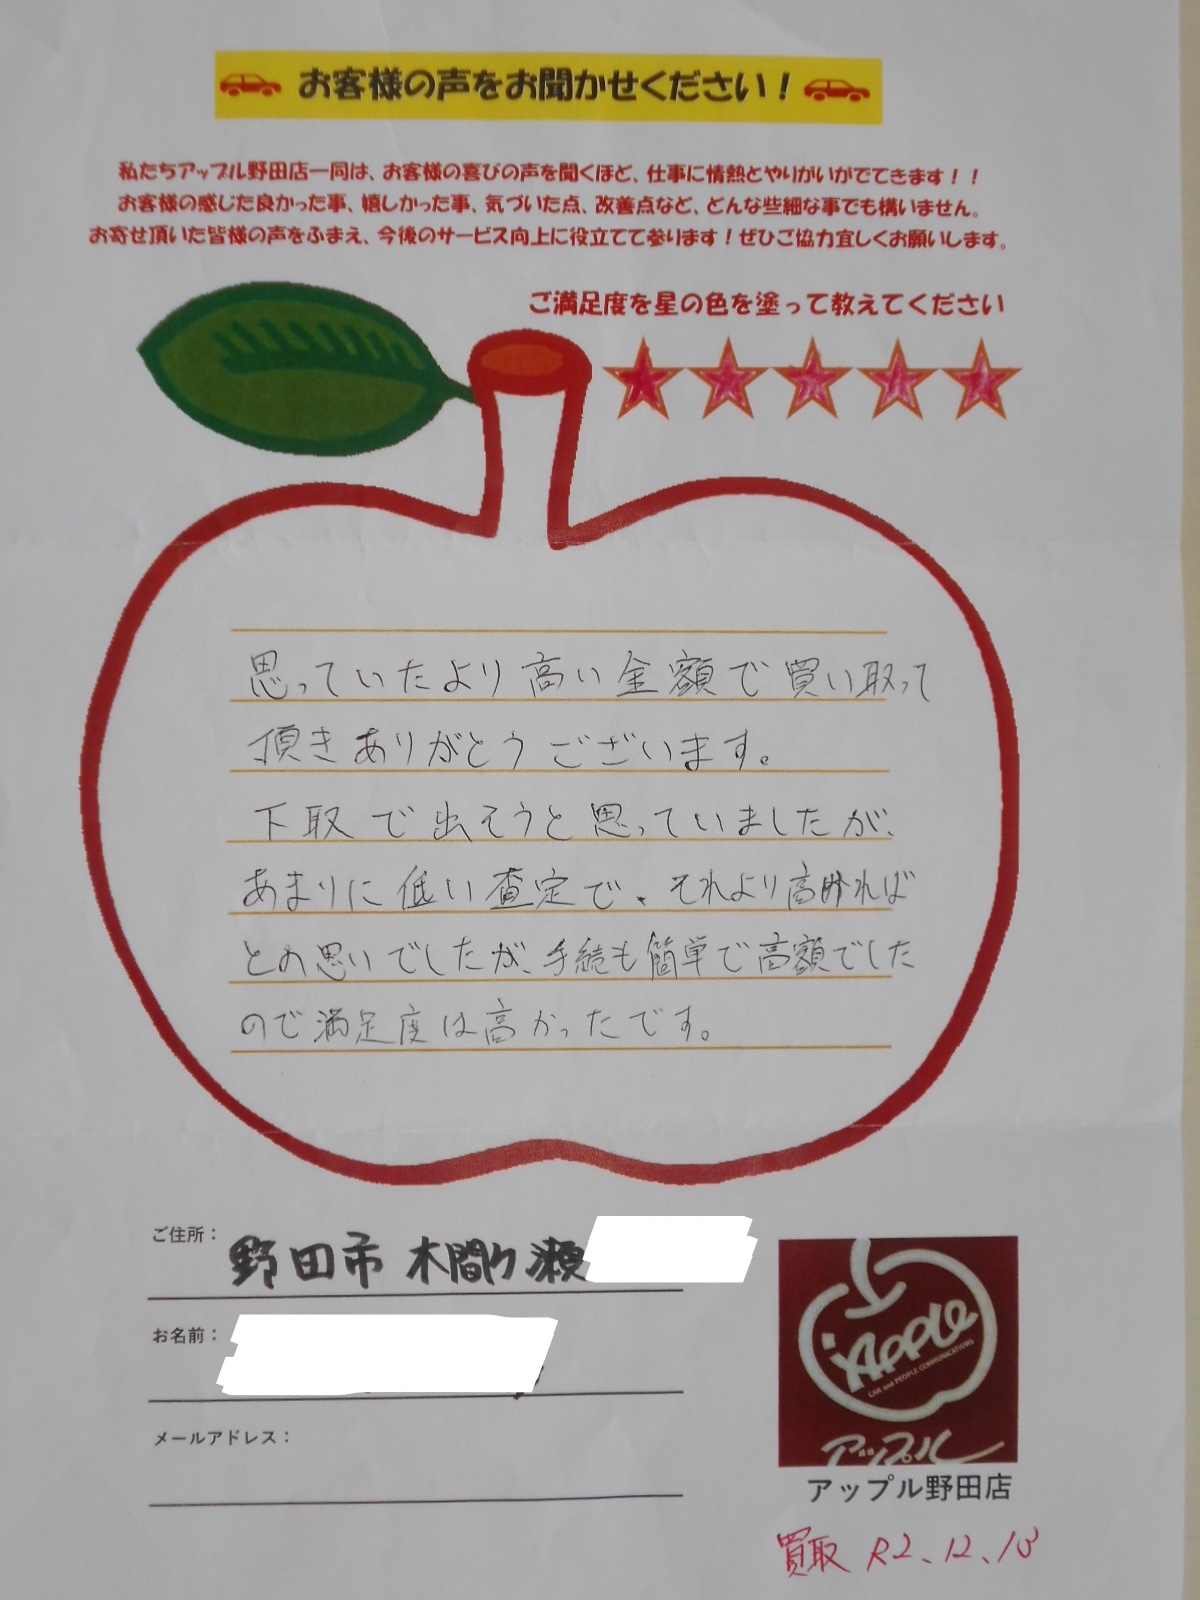 お客様の声をお聞かせください!
私たちアップル野田店一同は、お客様の喜びの声を聞くほど、仕事に情熱とやりがいがでてきます!!
お客様の感じた良かった事、嬉しかった事、気づいた点、改善点など、どんな些細な事でも構いません。
お寄せ頂いた皆様の声をふまえ、今後のサービス向上に役立てて参ります!ぜひご協力宜しくお願いします。
ご満足度を星の色を塗って教えてください
思っていたより高い金額で買い取って
頂きありがとうございます。
下取で出そうと思っていましたが、
あまりに低い査定で、それより高ければ
との思いでしたが、手続も簡単で高額でした
ので満足度は高かったです。
ご住所:
野田市 木間ケ瀬
お名前:
メールアドレス:
Apple
CAR and PEOPLE COMMUNICATIONS
アップル
アップル野田店
買取 R2、12、